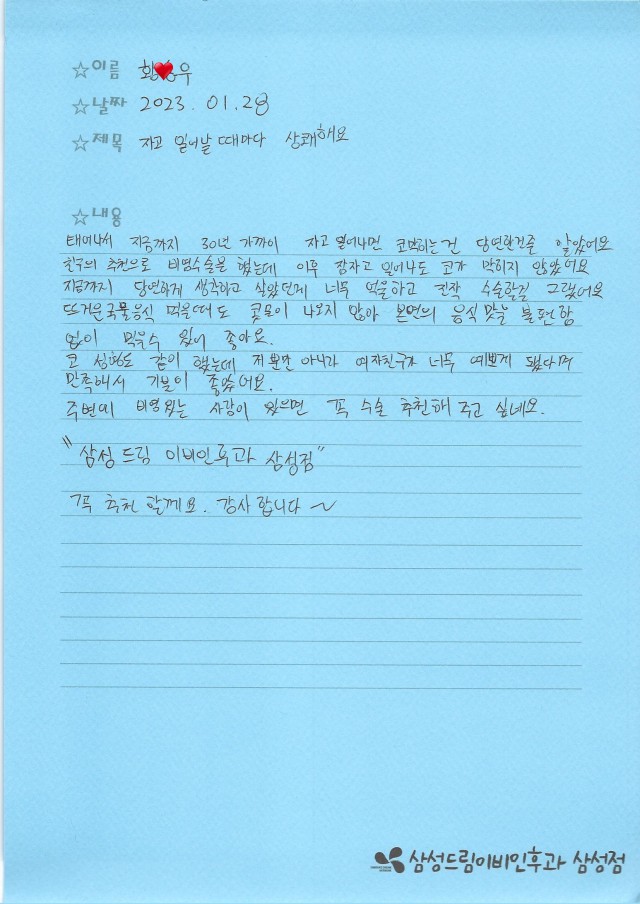 ☆이름 황❤우
☆날짜 2023. 01. 28
☆제목 자고 일어날 때마다 상쾌해요
☆내용
태어나서 지금까지 30년 가까이 자고 일어나면 코막히는건 당연한건줄 알았어요
친구의 추천으로 비염수술을 했는데 이후 잠자고 일어나도 코가 막히지 않았어요
지금까지 당연하게 생각하고 살았던게 너무 억울하고 진작 수술할걸 그랬어요
뜨거운국물음식 먹을때도 콧물이 나오지 않아 본연의 음식맛을 불편함
없이 먹을수 있어 좋아요.
코 성형도 같이 했는데 저뿐만 아니라 여자친구가 너무 예쁘게 됐다며
만족해서 기분이 좋았어요.
주변에 비염있는 사람이 있으면 꼭 수술 추천해 주고 싶네요.
"삼성드림 이비인후과 삼성점"
꼭 추천 할께요. 감사합니다 ~
삼성드림이비인후과 삼성점